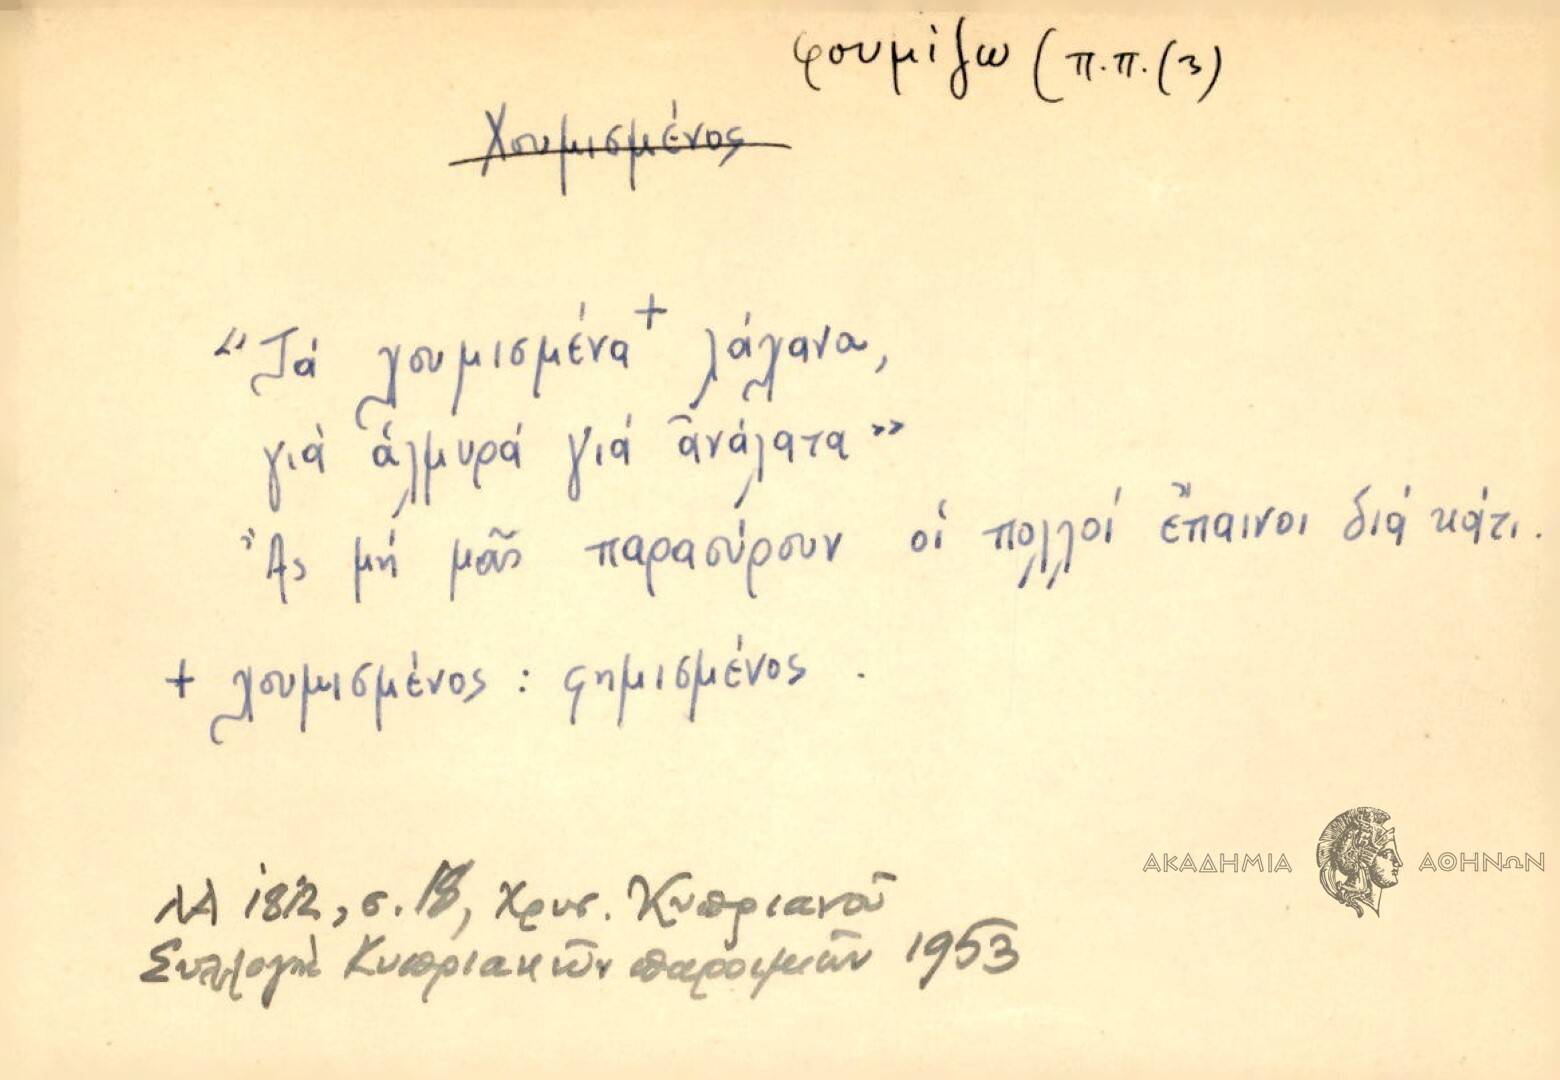 φουμίζω (π.π. (3)
Χουμισμένος
"Τά χουμισμένα + λάχανα,
γιά ἁλμυρά γιά ἀνάλατα"
Ἄς μή μᾶς παρασύρουν οἱ πολλοί ἔπαινοι διά κάτι.
+ χουμισμένος : φημισμένος .
ΛΑ 1812, σ. 18, Χρυσ. Κυπριανοῦ
Συλλογή Κυπριακῶν παροιμιῶν 1953
ΑΚΑΔΗΜΙΑ ΑΘΗΝΩΝ